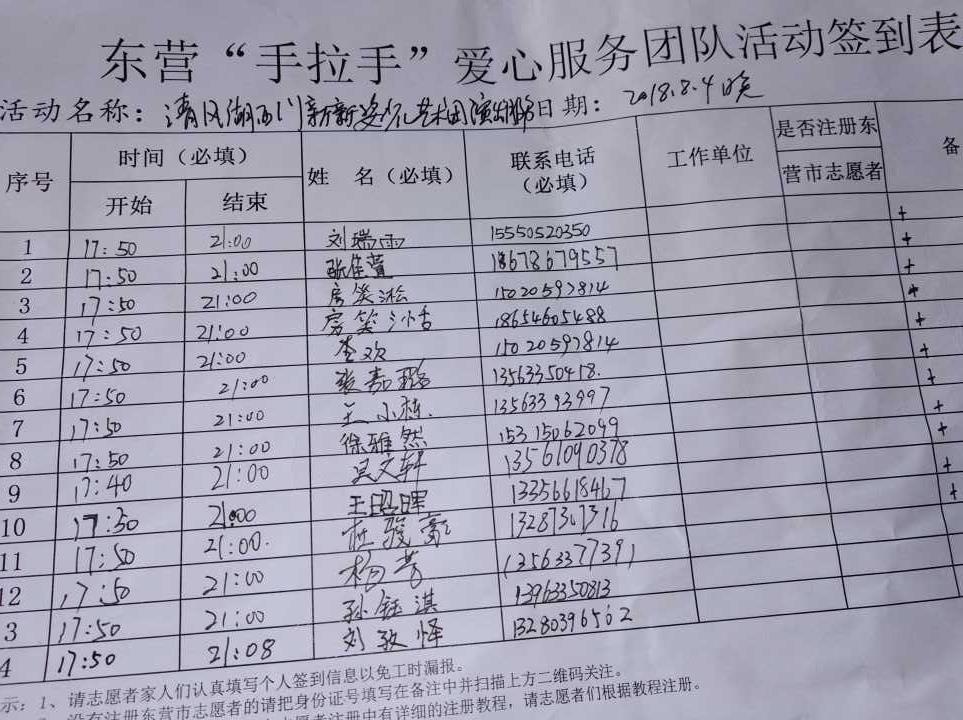 东营“手拉手”爱心服务团队活动签到表
活动名称：清风湖西门 日期：2018.8.4晚
序号 时间（必填） 姓 名（必填） 联系电话（必填） 工作单位 是否注册东营市志愿者 备
开始 结束
1 17:50 21:00 刘瑞雨 15550520350 +
2 17:50 21:00 张佳萱 18678679557 +
3 17:50 21:00 房笑淞 15020597814 +
4 17:50 21:00 房笑 18654605488 +
5 17:50 21:00 李欢 15020597814 +
6 17:50 21:00 张嘉璐 13563350418. +
7 17:50 21:00 王小栋. 13563393997 +
8 17:50 21:00 徐雅然 15315062099 +
9 17:40 21:00 吴文轩 13561090378 +
10 17:30 21:00 王昭晖 13356618467 +
11 17:50 21:00. 杜骏豪 13287307316 +
12 17:50 21:00 杨芳 13563377391
3 17:50 21:00 孙钰淇 13963350813
4 17:50 21:08 刘政怿 13280396562
示：1、请志愿者家人们认真填写个人签到信息以免工时漏报。
没有注册东营市志愿者的请把身份证号填写在备注中并扫描上方二维码关注。
志愿者注册中有详细的注册教程，请志愿者们根据教程注册。